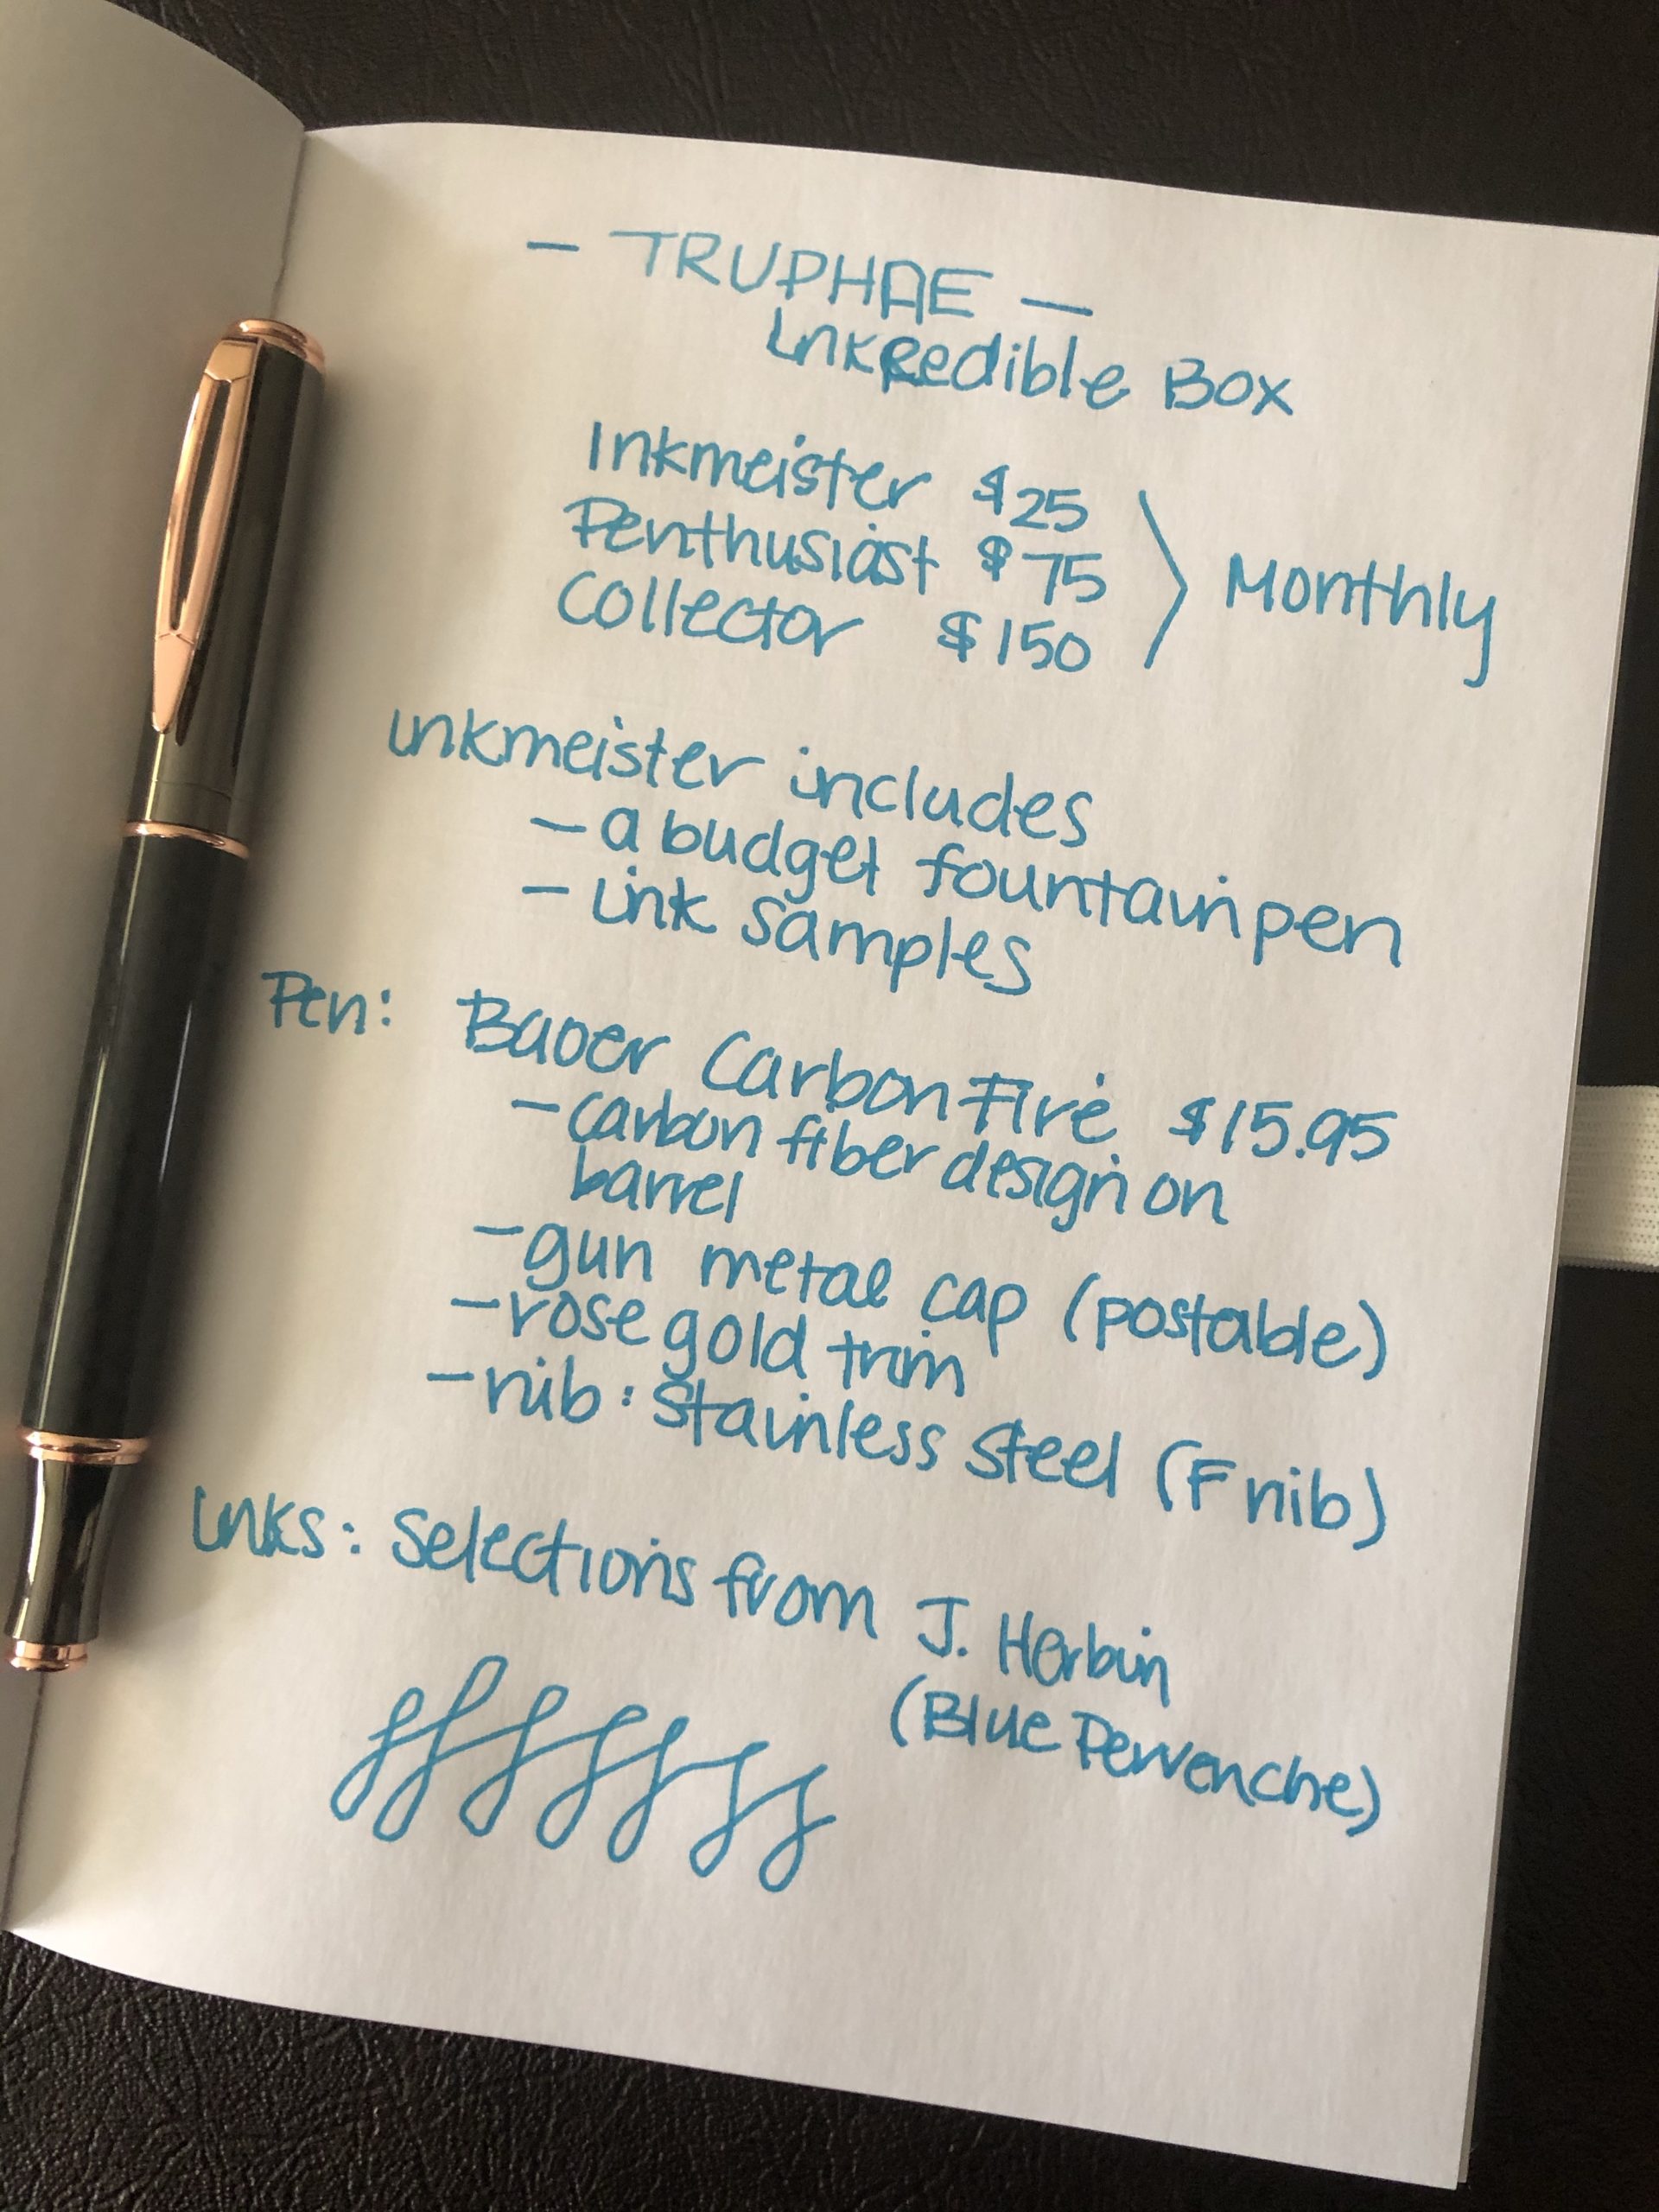 — TRUPHAE —
Inkredible Box
Inkmeister $25
Penthusiast $75
Collector $150
Monthly
inkmeister includes
– a budget fountain pen
– ink samples
Pen: Baoer Carbon Fire $15.95
– carbon fiber design on
barrel
– gun metal cap (postable)
– rose gold trim
– nib: Stainless Steel (F nib)
Inks: Selections from J. Herbin
(Blue Pervenche)